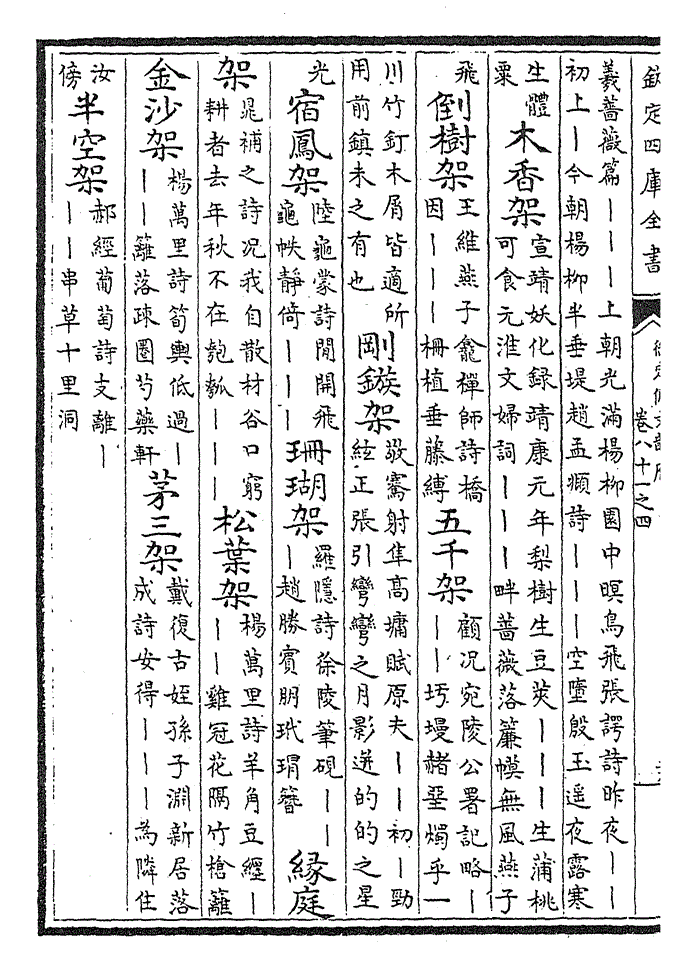 欽定四庫全書
卷八十一之四
羲薔薇篇丨丨丨丨上朝光滿楊柳園中暝鳥飛張諤詩昨夜丨丨
初上丨今朝楊柳半垂堤趙孟頫詩丨丨丨空墮殷玉遥夜露寒
生體
粟
木香架
宣靖妖化録靖康元年梨樹生豆莢丨丨丨生蒲桃
可食元淮文婦詞丨丨丨畔薔薇落簾幙無風燕子
飛
倒樹架
王維燕子龕禪師詩橋
因丨丨丨柵植垂藤縛
五千架
顧况宛陵公署記略丨
丨丨圬墁赭堊燭乎一
川竹釘木屑皆適所
用前鎮未之有也
剛鏃架
敬騫射隼高墉賦原夫丨丨初丨勁
絃正張引彎彎之月影迸的的之星
光
宿鳳架
陸龜蒙詩閒開飛
龜帙靜倚丨丨丨
珊瑚架
羅隱詩徐陵筆硯丨丨
丨趙勝賓朋玳瑁簪
緣庭
架
晁補之詩况我自散材谷口窮
耕者去年秋不在匏瓠丨丨丨
松葉架
楊萬里詩羊角豆纒丨
丨丨雞冠花隔竹槍籬
金沙架
楊萬里詩筍輿低過丨
丨丨籬落疎圍芍藥軒
茅三架
戴復古姪孫子淵新居落
成詩安得丨丨丨為隣住
汝
傍
半空架
郝經葡萄詩支離丨
丨丨串草十里洞